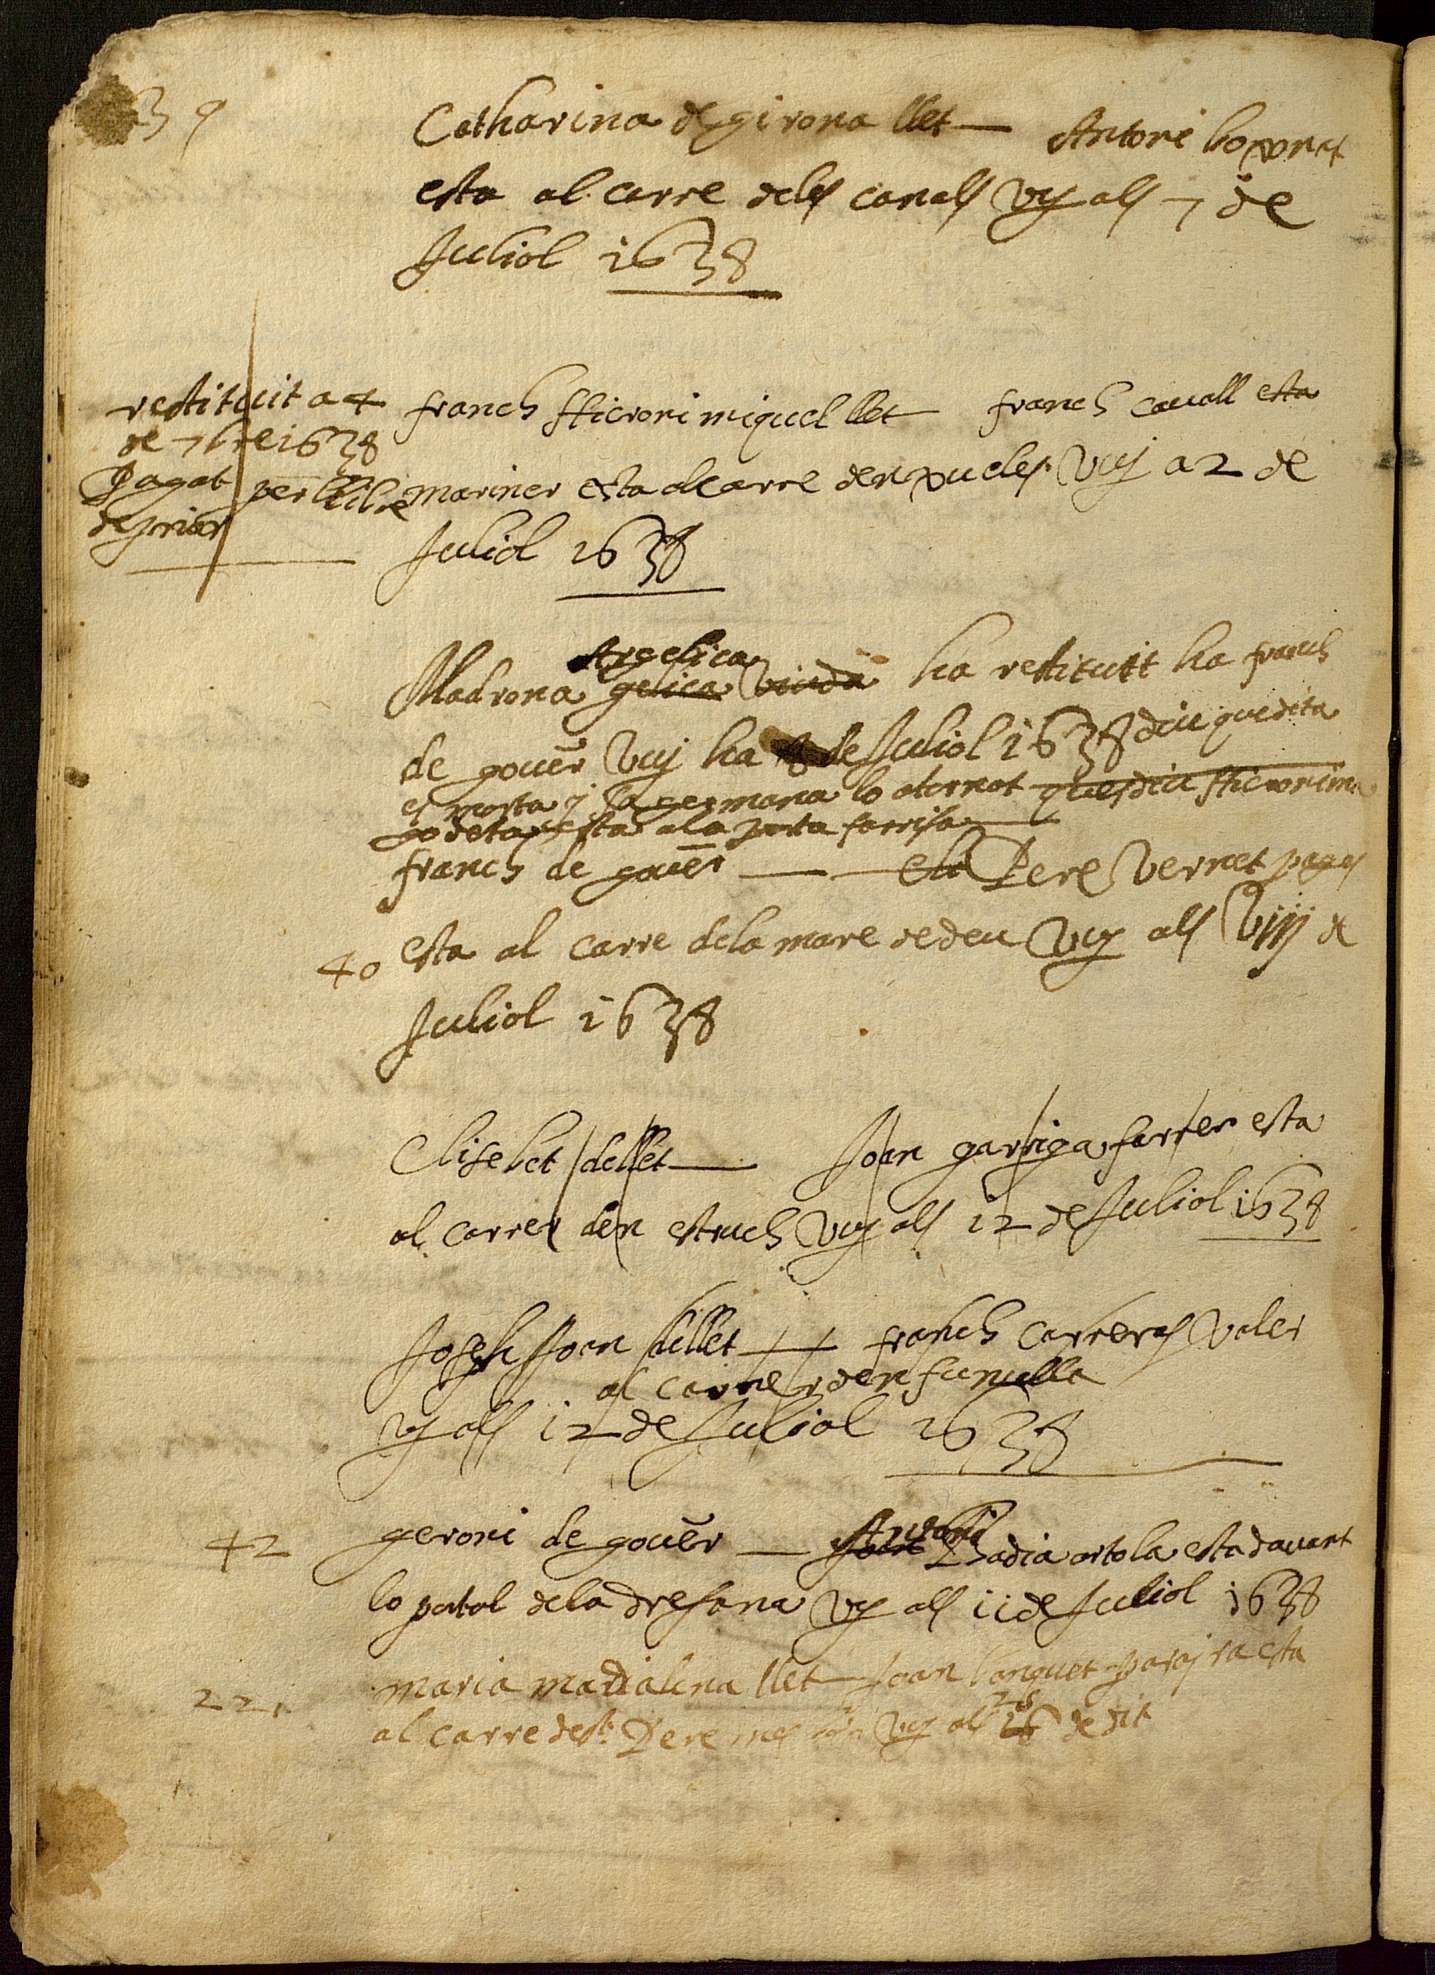 39
Catharina de girona llet — Antoni bonet
esta al carre dels canals vy als 7 de
Juliol 1638
restituit a 4
de 7bre 1638
Pagat per llibre
de prior
franch Hieroni miquel llet franch cavall esta
mariner esta al carre den xucles vuy a 2 de
Juliol 1638
Angelica
Madrona gelica viuda ha restituit ha franch
de gover vuy ha 8 de Juliol 1638 diu que dita
es morta y sa germana lo a tornat que diu Hieronima
godeta esta a la porta farrisa
franch de gover — Pere vernet pages
40
esta al carre de la mare de deu vuy als viiij de
Juliol 1638
Elisebet de llet — Joan garriga farrer esta
al carrer den estruch vuy als 12 de Juliol 1638
Joseph Joan de llet — franch carreras valer
al carrer den funulla
vy als 12 de Juliol 1638
42
geroni de gover — Antoni Badia ortola esta davant
lo portal de la dresana vy als 11 de Juliol 1638
22
maria madalena llet Joan esta
al carre de st Pere mes vuy als 28 de dit